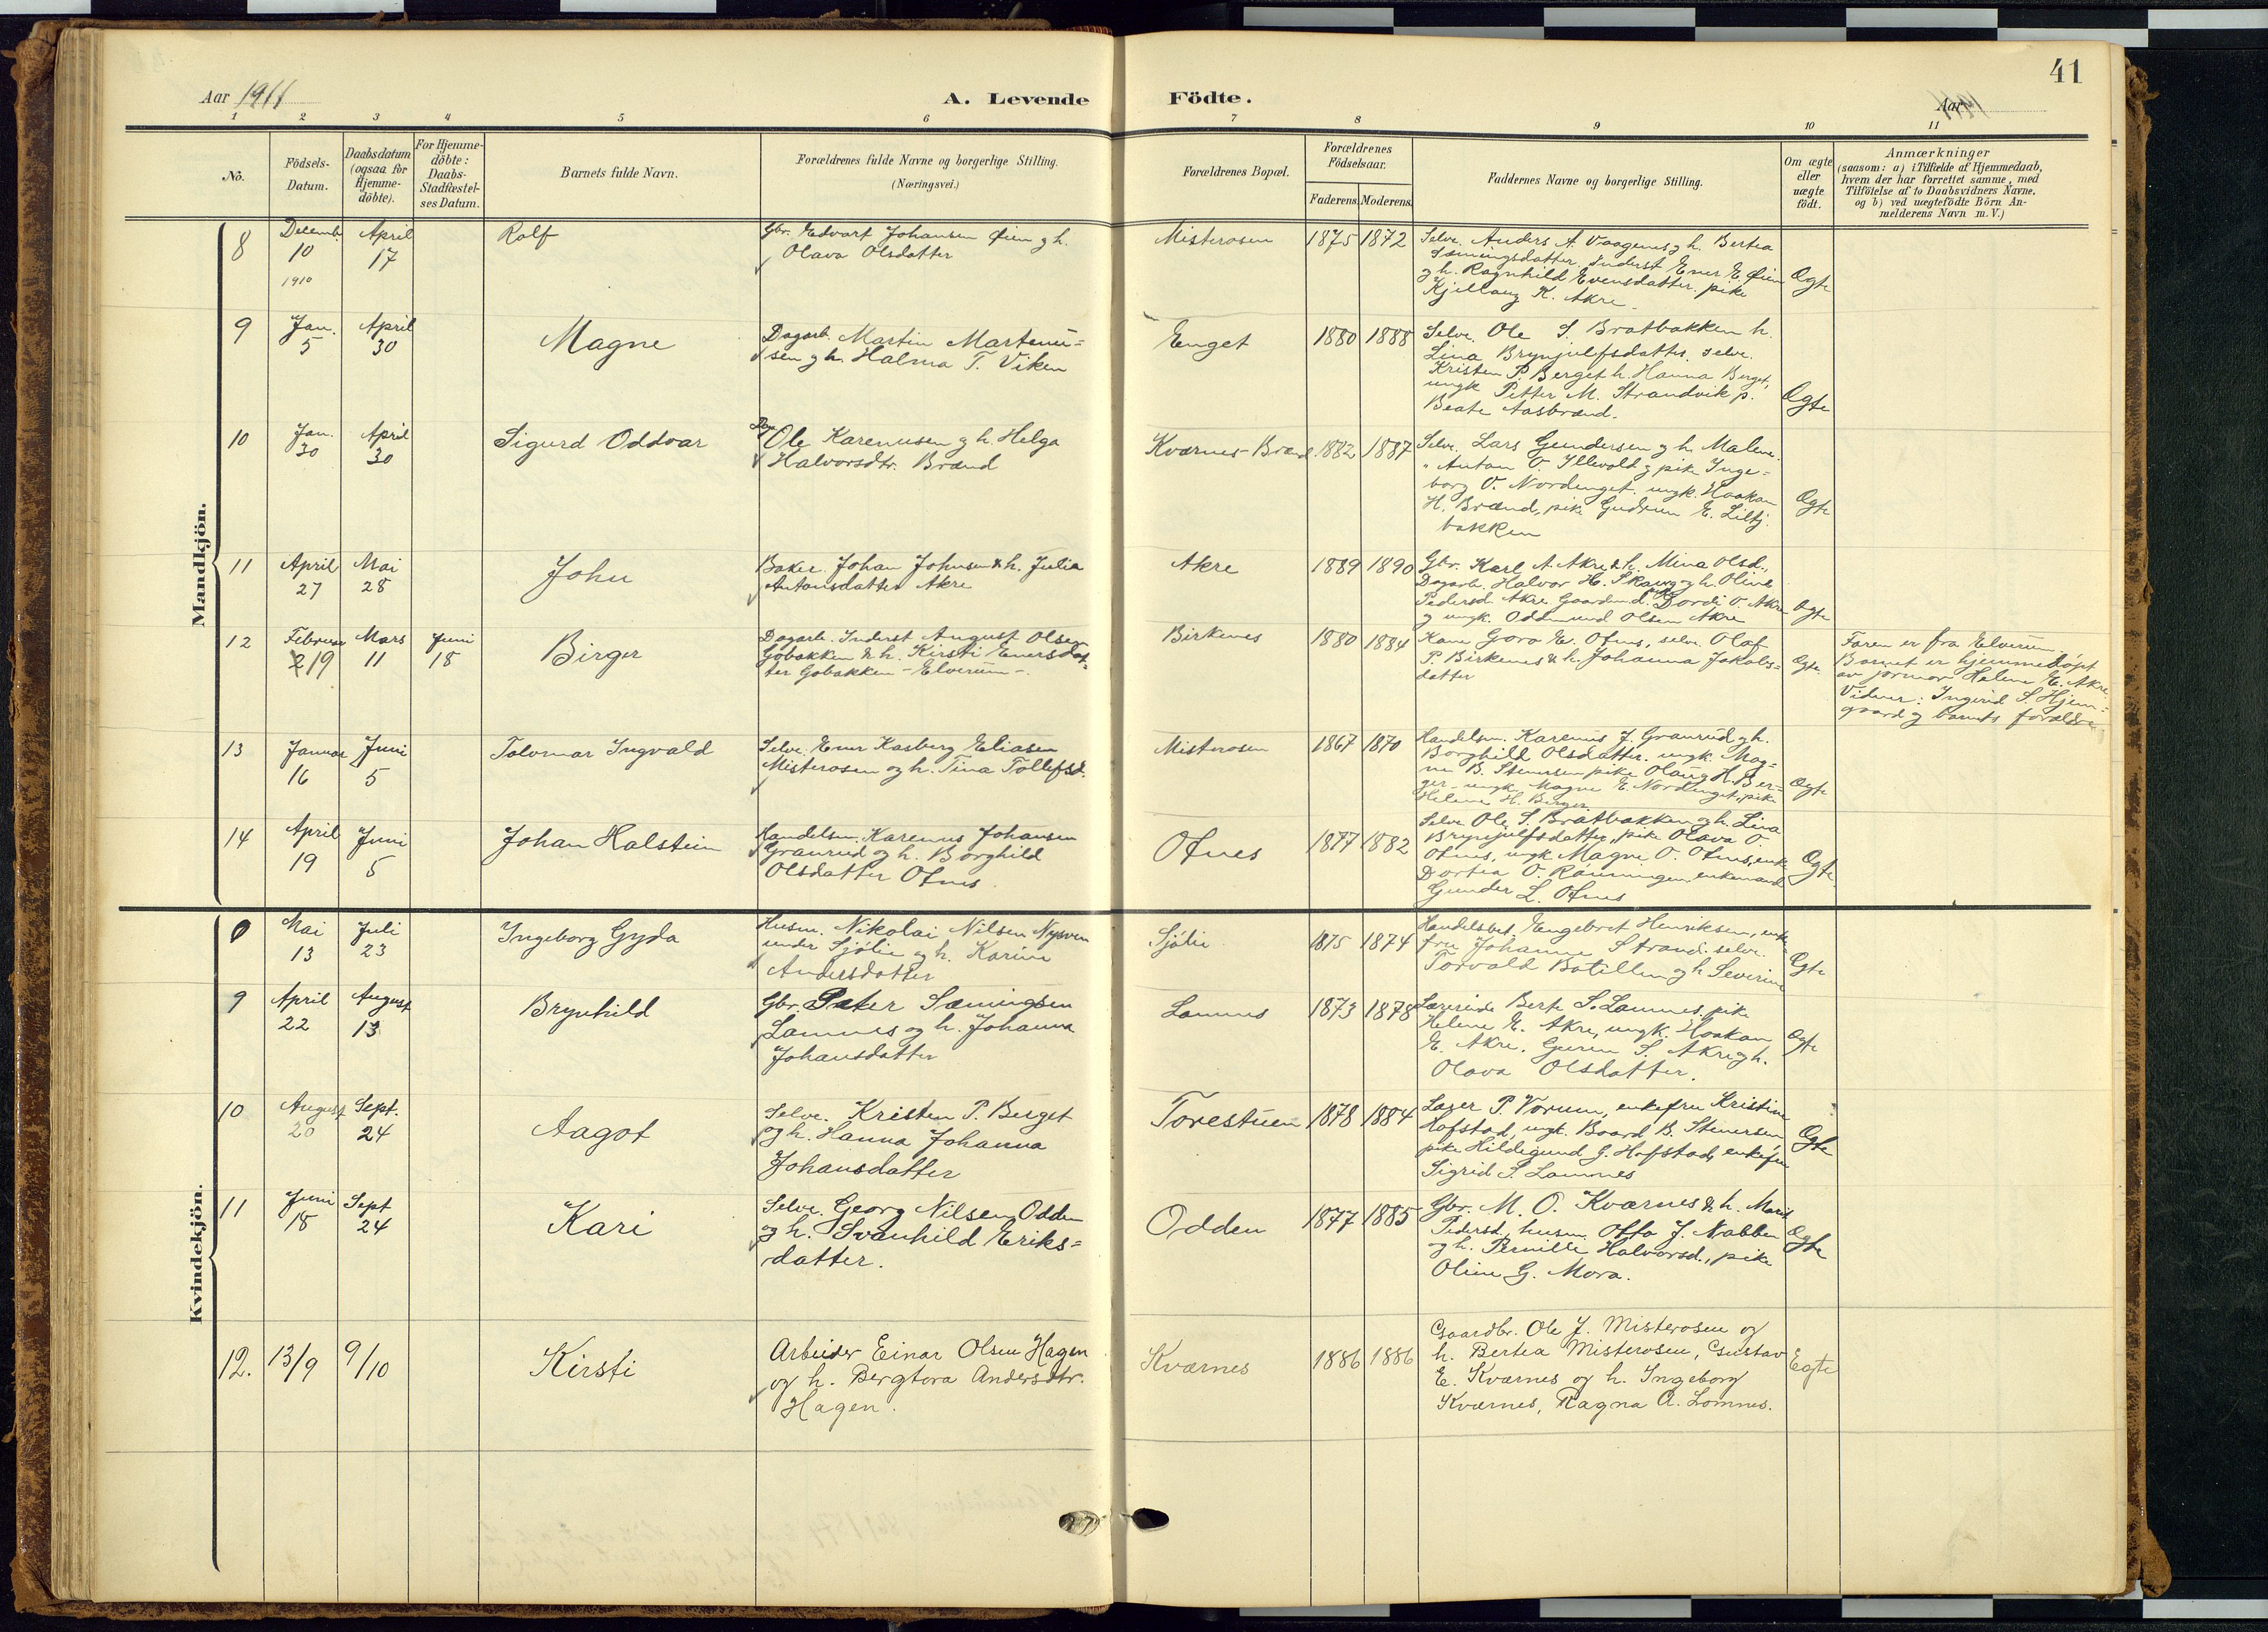 41
Aar 1911
A. Levende Födte.
Aar 1911
1 2 3 4 5 6 7 8 9 10 11
No.
Födsels-Datum.
Daabsdatum (ogsaa for Hjemme-döbte).
For Hjemme-döbte: Daabs-Stadfæstel-ses Datum.
Barnets fulde Navn.
Forældrenes fulde Navne og borgerlige Stilling.
(Næringsvei.)
Forældrenes Bopæl.
Forældrenes Födselsaar.
Faderens. Moderens.
Faddernes Navne og borgerlige Stilling.
Om ægte eller uægte födt.
Anmærkninger
(saasom: a) i Tilfælde af Hjemmedaab,
hvem der har forrettet samme, med
Tilföielse af to Daabsvidners Navne,
og b) ved uægtefödte Börn An-
melderens Navn m. V.)
Mandkjön.
8 Decemb. 10 1910 April 17 Rolf
Gbr. Edvart Johansen Øien og h.
Olava Olsdatter
Misterosen 1875 1872
Selve. Anders A. Vaagenes og h. Bertea
Sæmingsdatter. Inderst Ener E. Øien
og h. Ragnhild Evensdatter. pike
Kjellaug K. Akre
Ægte
9 Jan. 5 April 30 Magne
Dagarb. Martin Martinu=
sen og h. Halma T. Viken
Enget 1880 1888
Selve. Ole S. Bratbakken h.
Lina Brynjulfsdatter. selve.
Kristen P. Berget h. Hanna Berget,
ungk Petter M. Strandvik p.
Beate Aasbrænd.
Ægte
10 Jan. 30 April 30 Sigurd Oddvar
Ole Karenusen og h. Helga
Halvorsdtr. Brænd
Kværnes-Brænd 1882 1887
Selve. Lars Gundersen og h. Malene.
" Anton O. Illevold og pike Inge=
borg O. Nordenget. ungk. Haakon
H. Brænd, pike Gudrun E. Lillj.
bakken
Ægte
11 April 27 Mai 28 John
Baker Johan Johnsen & h. Julia
Antonsdatter Akre
Akre 1889 1890
Gbr. Karl A. Akre & h. Mina Olsd.,
Dagarb. Halvor H. Skaug og h. Oline
Pedersd. Akre Gaardmd. Dordi O. Akre
og ungk. Oddmund Olsen Akre
Ægte
12 Februar 19 Mars 11 Juni 18 Birger
Dagarb. Inderst August Olsen
Gobakken & h. Kirsti Enersdat=
ter Gobakken - Elverum -.
Birkenes 1880 1884
Kone Gora E. Otnes, selve. Olaf
P. Birkenes & h. Johanna Jakobs=
datter
Ægte
Faren er fra Elverum.
Barnet er hjemmedøpt
av jormor Helene E. Akre.
Vidner: Ingerid S. Hjem=
gaard og barnets forældre
13 Januar 16 Juni 5 Tolvmar Ingvald
Selve. Ener Kasberg Eliasen
Misterosen og h. Tina Tollefsd.
Misterosen 1867 1870
Handelsm. Karenus J. Granrud og h.
Borghild Olsdatter. ungk. Mag=
ne B. Stenersen pike Olaug H. Ber=
ger - ungk. Magne E. Nordenget, pike
Helene H. Berger
Ægte
14 April 19 Juni 5 Johan Halstein
Handelsm. Karenus Johansen
Granrud og h. Borghild
Olsdatter Otnes.
Otnes 1877 1882
Selve Ole S. Bratbakken og h. Lina
Brynjulfsdatter, pike Olava O.
Otnes, ungk. Magne O. Otnes, enke
Dortea O. Rønningen. enkemand
Gunder L. Otnes
Ægte
Kvindekjön.
8 Mai 13 Juli 23 Ingeborg Gyda
Husm. Nikolai Nilsen Nysven
under Sjölie og h. Karine
Andersdatter
Sjölie 1875 1874
Handelsbet. Engebret Henriksen, enke
fru Johanne Strand. selve.
Torvald Botillen og h. Severine
Ægte
9 April 22 August 13 Brynhild
Gbr. Peter Sæmingsen
Lomnes og h. Johanna
Johansdatter
Lomnes 1873 1878
Lærerinde Berte S. Lomnes, pike
Helene E. Akre, ungk. Haakon
E. Akre. Guren S. Akre og h.
Olava Olsdatter.
Ægte
10 August 20 Sept. 24 Aagot
Selve. Kristen P. Berget
og h. Hanna Johanna
Johansdatter
Torestuen 1878 1884
Læger P. Vorum, enkefru Kristine
Hofstad, ungk. Baard B. Stenersen,
pike Hildegund G. Hofstad, enkefru
Sigrid S. Lomnes
Ægte
11 Juni 18 Sept 24 Kari
Selve. Georg Nilsen Odden
og h. Svanhild Eriks=
datter.
Odden 1877 1885
Gbr. M. O. Kværnes & h. Marit
Pedersd., husm. Otto J. Nabben
og h. Pernille Halvorsd., pike
Oline G. Mora.
Ægte
12. 13/9 9/10 Kirsti
Arbeider Einar Olsen Hagen
og h. Bergtora Andersdtr.
Hagen.
Kværnes 1886 1886
Gaardbr. Ole J. Misterosen og
h. Bertea Misterosen, Gustav
E. Kværnes og h. Ingeborg
Kværnes, Ragna A. Lomnes.
Egte